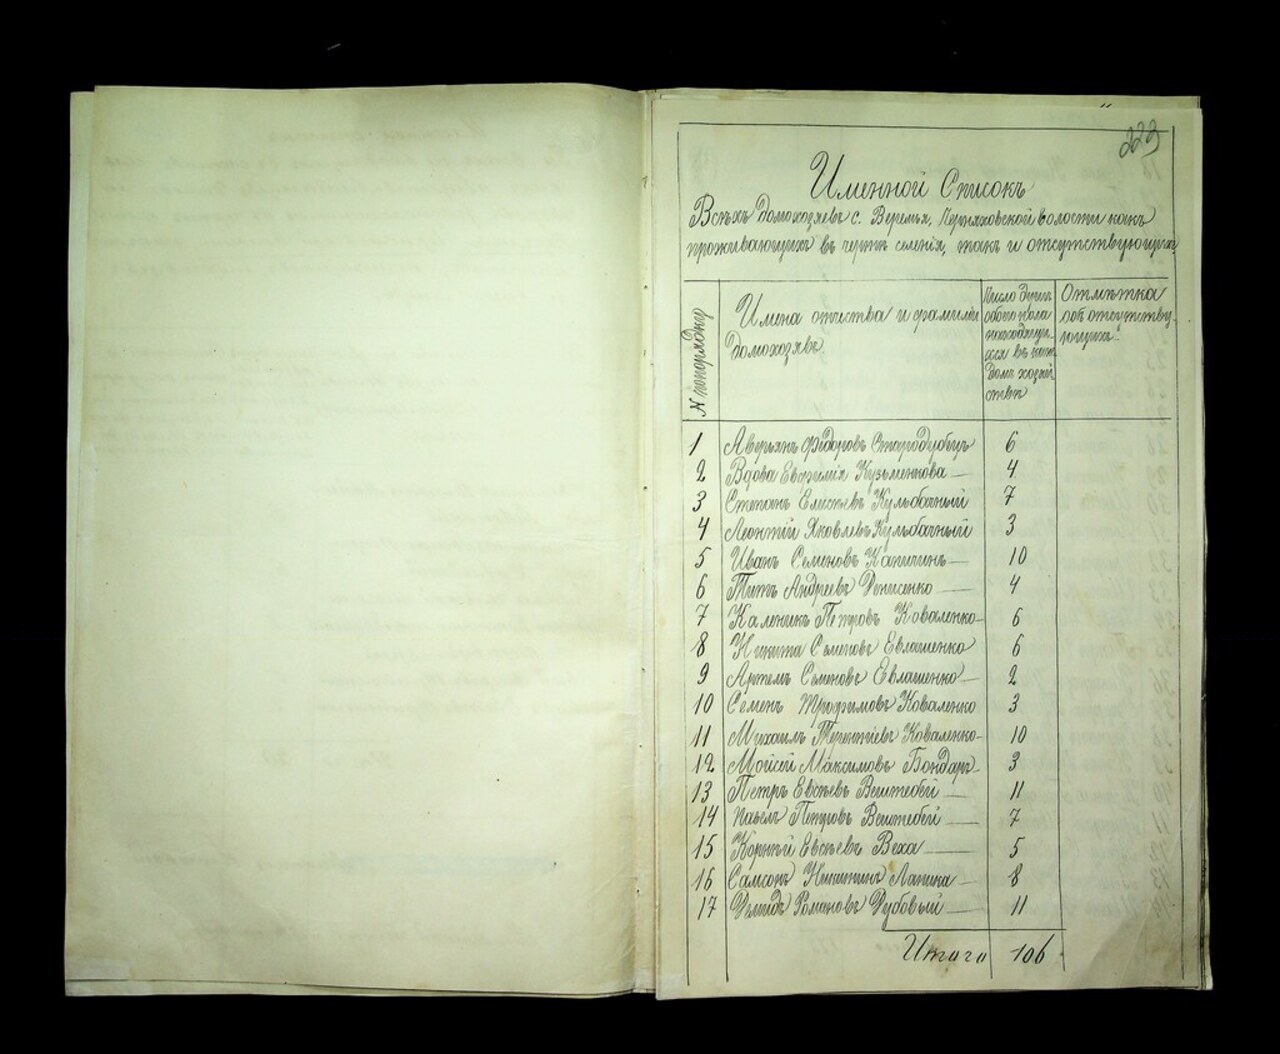 223
Именной Списокъ
Всѣхъ домохозяевъ с. Веремья, Черняховской волости какъ
проживающихъ въ чертѣ селенія, такъ и отсутствующихъ
N по порядку
Имена отчества и фамиліи
домохозяевъ.
Число душъ
обоего пола
находящи
хся въ каж
домъ хозяй
ствѣ
Отмѣтка
объ отсутству-
ющихъ.
1 Аверьянъ Федоровъ Стародубецъ 6
2 Вдова Евфимія Кузьменкова 4
3 Степанъ Елисѣевъ Кульбачный 7
4 Леонтій Яковлевъ Кульбачный 3
5 Иванъ Семеновъ Капичинъ 10
6 Титъ Андреевъ Денисенко 4
7 Каленикъ Петровъ Коваленко 6
8 Никита Семеновъ Евлашенко 6
9 Артемъ Семеновъ Евлашенко 2
10 Семенъ Трофимовъ Коваленко 3
11 Михаилъ Терентіевъ Коваленко 10
12 Мойсей Максимовъ Бондарь 3
13 Петръ Евсѣевъ Вештебей 11
14 Павелъ Петровъ Вештебей 7
15 Корнѣй Евсѣевъ Веха 5
16 Самсонъ Никитинъ Лапика 8
17 Демидъ Романовъ Дубовый 11
Итого 106